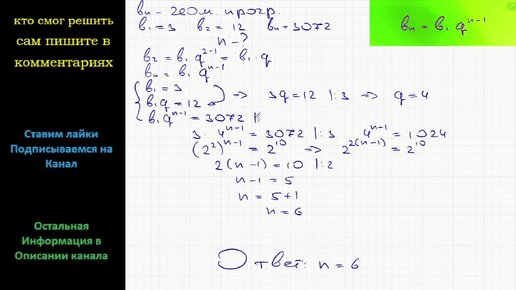 кто смог решить
сам пишите в
комментариях
Ставим лайки
Подписываемся на
Канал
Остальная
Информация в
Описании канала
bₙ - геом. прогр.
b₁ = 3 b₂ = 12 bₙ = 3072
n - ?
b₂ = b₁ q²⁻¹ = b₁ · q
bₙ = b₁ qⁿ⁻¹
{ b₁ = 3
b₁q = 12 => 3q = 12 |:3 => q = 4
b₁qⁿ⁻¹ = 3072
3 · 4ⁿ⁻¹ = 3072 |:3 4ⁿ⁻¹ = 1024
(2²)ⁿ⁻¹ = 2¹⁰ => 2²⁽ⁿ⁻¹⁾ = 2¹⁰
2(n-1) = 10 |:2
n-1 = 5
n = 5+1
n = 6
Ответ: n = 6
bₙ = b₁ qⁿ⁻¹